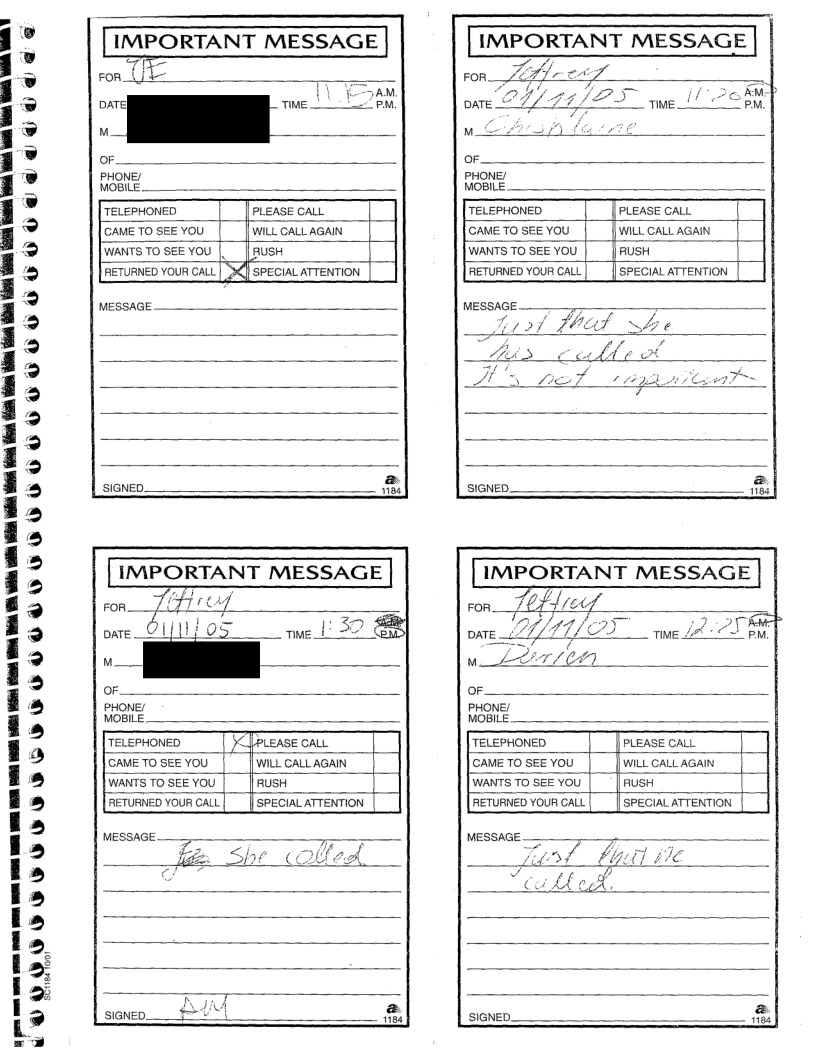 IMPORTANT MESSAGE
FOR JE
DATE TIME 11:15 A.M.
P.M.
M
OF
PHONE/
MOBILE
TELEPHONED PLEASE CALL
CAME TO SEE YOU WILL CALL AGAIN
WANTS TO SEE YOU RUSH
RETURNED YOUR CALL X SPECIAL ATTENTION
MESSAGE
SIGNED
1184
IMPORTANT MESSAGE
FOR Jeffrey
DATE 01/11/05 TIME 11:20 A.M.
P.M.
M Chishlaine
OF
PHONE/
MOBILE
TELEPHONED PLEASE CALL
CAME TO SEE YOU WILL CALL AGAIN
WANTS TO SEE YOU RUSH
RETURNED YOUR CALL SPECIAL ATTENTION
MESSAGE
Just that she
has called
It's not important
SIGNED
1184
IMPORTANT MESSAGE
FOR Jeffrey
DATE 01/11/05 TIME 1:30 A.M.
P.M.
M
OF
PHONE/
MOBILE
TELEPHONED X PLEASE CALL
CAME TO SEE YOU WILL CALL AGAIN
WANTS TO SEE YOU RUSH
RETURNED YOUR CALL SPECIAL ATTENTION
MESSAGE
She called
SIGNED AM
1184
IMPORTANT MESSAGE
FOR Jeffrey
DATE 01/11/05 TIME 12:25 A.M.
P.M.
M Derrien
OF
PHONE/
MOBILE
TELEPHONED PLEASE CALL
CAME TO SEE YOU WILL CALL AGAIN
WANTS TO SEE YOU RUSH
RETURNED YOUR CALL SPECIAL ATTENTION
MESSAGE
Just that he
called.
SIGNED
1184
SC1184 10/01